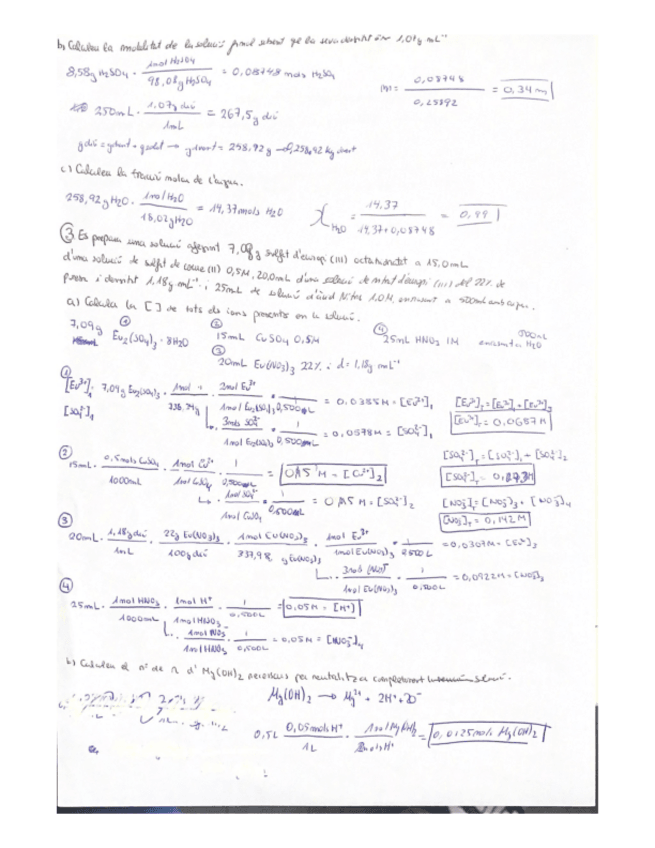 b) Calculeu la molalitat de la solució final sabent que la seva densitat és 1,07g mL⁻¹
8,58g H₂SO₄ · 1mol H₂SO₄ / 98,08g H₂SO₄ = 0,08748 mols H₂SO₄
m = 0,08748 / 0,25892 = 0,34 m
250mL · 1,07g dió / 1mL = 267,5g dió
g dió = g dvent + g solut → g dvent = 258,92g → 0,25892 kg dvent
c) Calculeu la fracció molar de l'aigua.
258,92g H₂O · 1mol H₂O / 18,02g H₂O = 14,37mols H₂O
X H₂O = 14,37 / 14,37+0,08748 = 0,99
③ Es prepara una solució afegint 7,09g sulfat d'europi (III) octahidratat a 15,0mL
d'una solució de sulfat de coure (II) 0,5M, 20,0mL d'una solució de nitrat d'europi (III) del 22% de
puresa i densitat 1,18g·mL⁻¹, i 25mL de solució d'àcid Nítric 1.0M, enrasant a 500mL amb aigua.
a) Calcula la [ ] de tots els ions presents en la solució.
7,09g ① Eu₂(SO₄)₃ · 8H₂O
② 15mL CuSO₄ 0,5M
④ 25mL HNO₃ 1M 500mL H₂O
③ 20mL Eu(NO₃)₃ 22% i d=1,18g mL⁻¹
①
[Eu³⁺]₁ 7,09g Eu₂(SO₄)₃ · 1mol / · 2mol Eu³⁺ / 1mol Eu₂(SO₄)₃ · 1 / 0,500L = 0,0385M = [Eu³⁺]₁
[Eu³⁺]T = [Eu³⁺]₁ + [Eu³⁺]₃
[Eu³⁺]T = 0,0687M
[SO₄²⁻]₁ 3mols SO₄²⁻ / 1mol Eu₂(SO₄)₃ · 1 / 0,500L = 0,0578M = [SO₄²⁻]₁
②
15mL · 0,5mols CuSO₄ / 1000mL · 1mol Cu²⁺ / 1mol CuSO₄ · 1 / 0,500L = 0,15M = [Cu²⁺]₂
[SO₄²⁻]T = [SO₄²⁻]₁ + [SO₄²⁻]₂
1mol SO₄²⁻ / 1mol CuSO₄ · 1 / 0,500L = 0,15M = [SO₄²⁻]₂
[NO₃⁻]T = [NO₃⁻]₃ + [NO₃⁻]₄
[NO₃⁻]T = 0,142M
③
20mL · 1,18g dió / 1mL · 22g Eu(NO₃)₃ / 100g dió · 1mol Eu(NO₃)₃ / 337,98 g Eu(NO₃)₃ · 1mol Eu³⁺ / 1mol Eu(NO₃)₃ · 1 / 0,500L = 0,0307M = [Eu³⁺]₃
3mol (NO₃)⁻ / 1mol Eu(NO₃)₃ · 1 / 0,500L = 0,0922M = [NO₃⁻]₃
④
25mL · 1mol HNO₃ / 1000mL · 1mol H⁺ / 1mol HNO₃ · 1 / 0,500L = 0,05M = [H⁺]
1mol NO₃⁻ / 1mol HNO₃ · 1 / 0,500L = 0,05M = [NO₃⁻]₄
b) Calculeu el nº de n d' Mg(OH)₂ necessaris per neutralitzar completament
Mg(OH)₂ → Mg²⁺ +
0,5L 0,05mols H⁺ / 1L · 1mol Mg(OH)₂ / 2mols H⁺ = 0,0125mols Mg(OH)₂